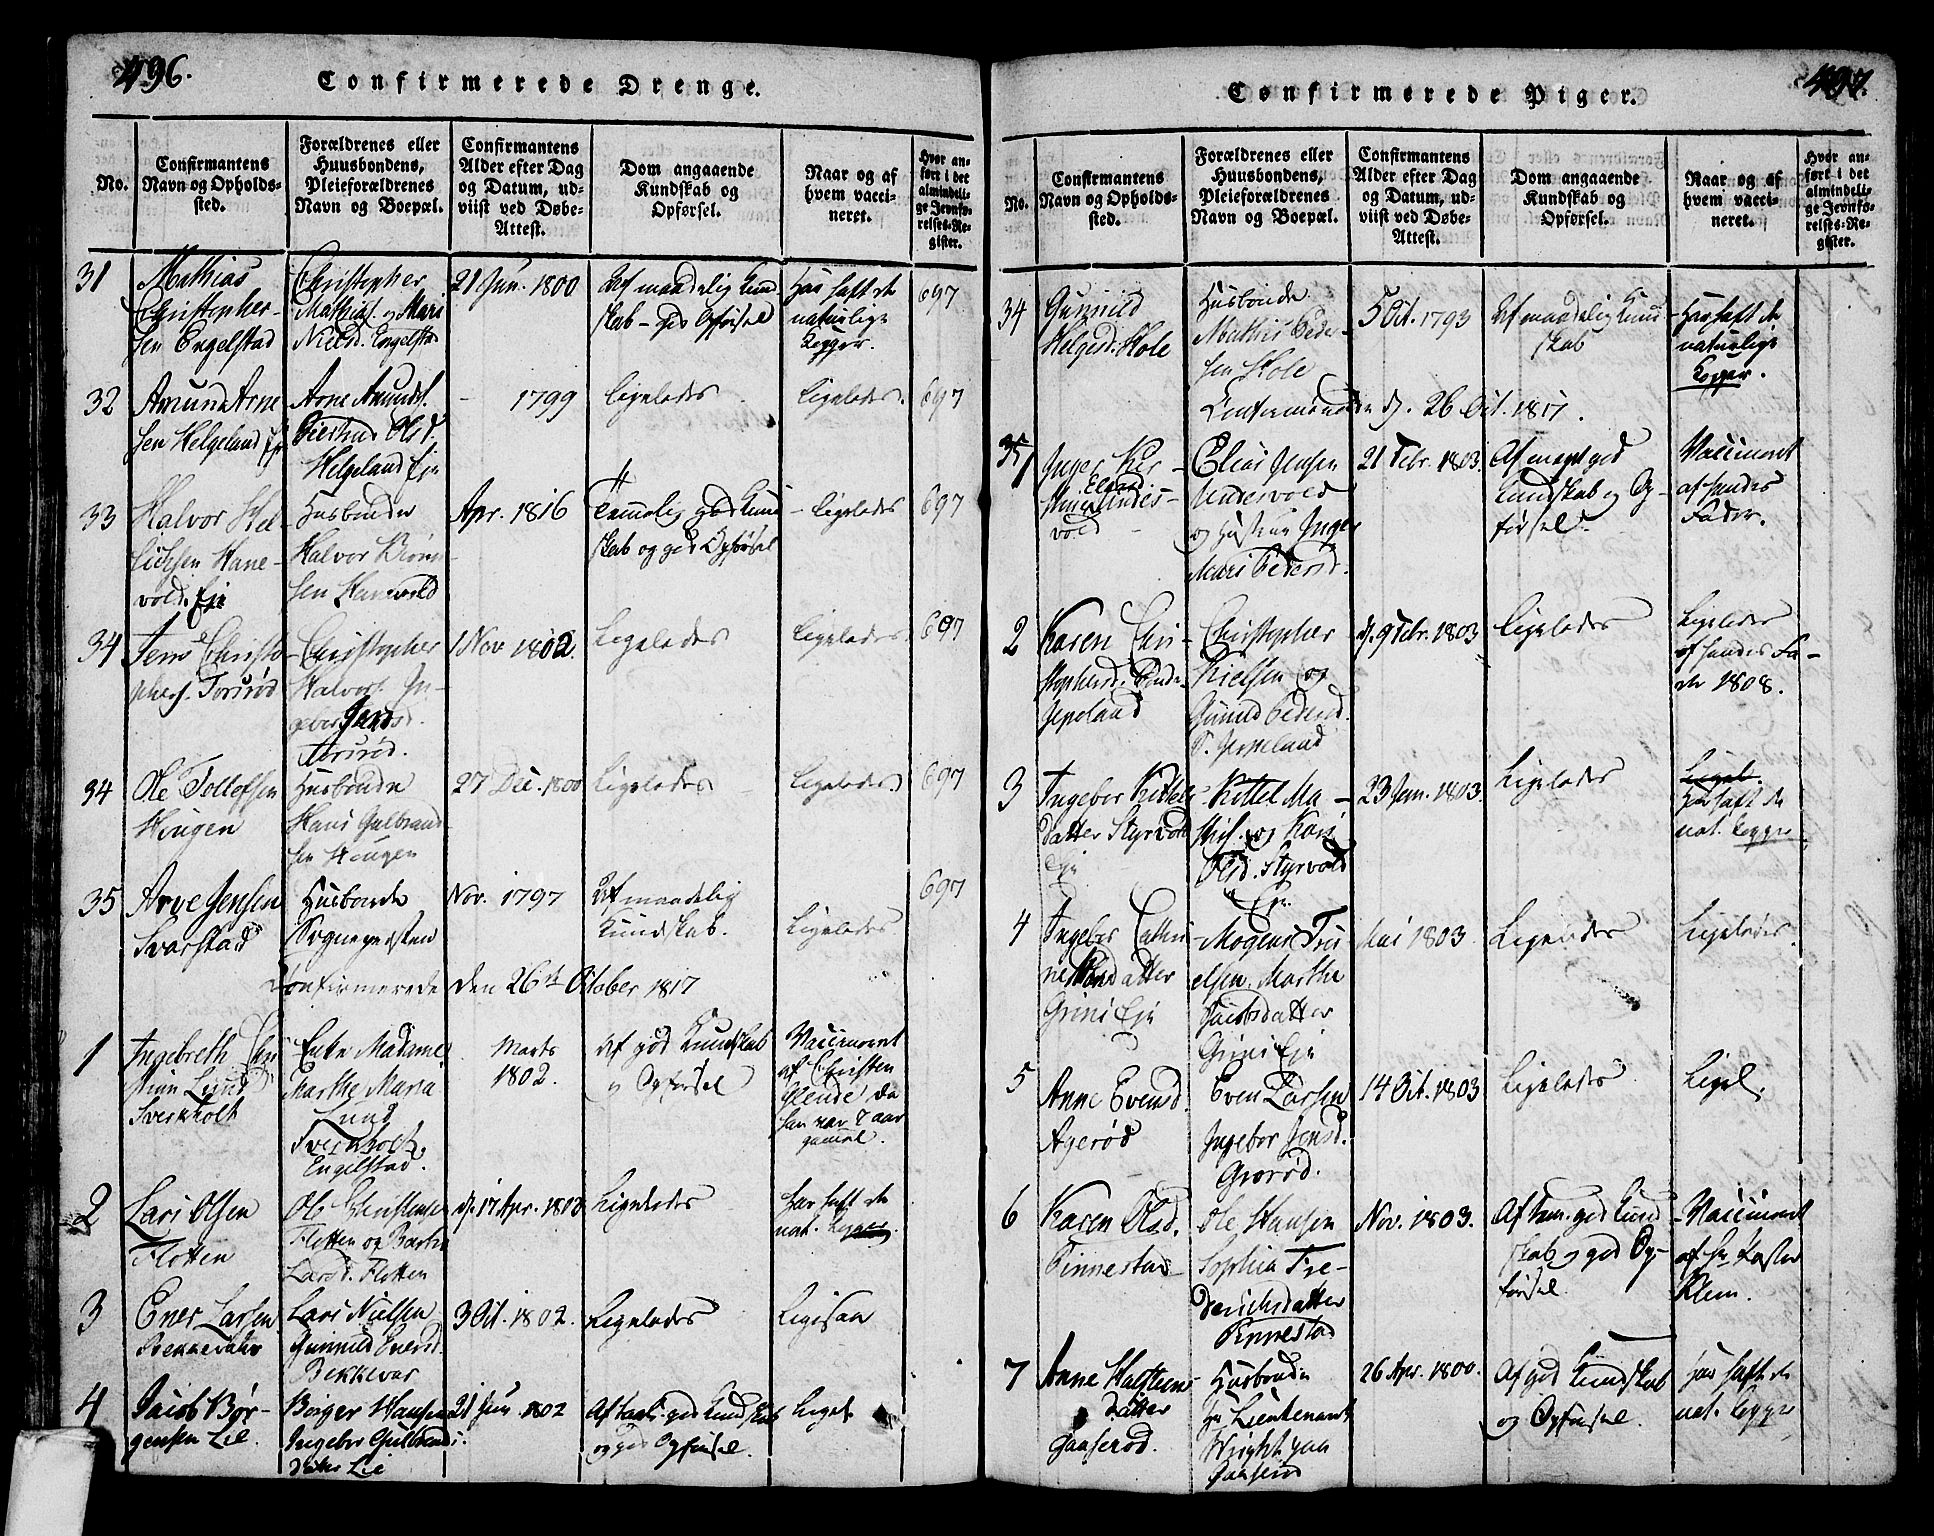 496.
Confirmerede Drenge.
No.
Confirmantens Navn og Opholdssted.
Forældrenes eller Huusbondens, Pleieforældrenes Navn og Boepæl.
Confirmantens Alder efter Dag og Datum, udviist ved Døbe-Attest.
Dom angaaende Kundskab og Opførsel.
Naar og af hvem vaccineret.
Hvor anført i det almindelige Jevnførelses-Register.
31
Mathias
Christopher-
sen Engelstad
Christopher
Mathias. og Mari
Nielsd. Engelstad
21 Jun. 1800
Af maadelig Kund
skab - god Opførsel
Har haft de
naturlige
Kopper.
697
32
Amund Arne
sen Helgeland Eje
Arne Amunds.
Olsd.
Helgeland Eje
- 1799
Ligeledes
Ligeledes.
697
33
Halvor
Hane-
vold. Eje
Husbonde
Halvor
sen Hanevold
Apr. 1816
Temmelig god Kund
skab og god Opførsel
Ligeledes
697
34
Jens Christo
phers. Torsrød
Christopher
Halvors. In-
geber Jensd.
Torsrød.
1 Nov 1802.
Ligeledes
Ligeledes.
697
34
Ole Tollefsen
Hougen
Husbonde
Hans Gulbrand
sen Hougen
27 Dec. 1800
Ligeledes
Ligeledes.
697
35
Arve Jensen
Svarstad
Husbonde
Sognepresten
Nov. 1797
Af maadelig
Kundskab.
Ligeledes
697
Confirmerede den 26de October 1817
1
Ingebreth Chri
Lund
Sverkholt
Enke Madame
Marthe Maria
Lund
Sverkholt,
Engelstad.
Marts
1802.
af god Kundskab
og Opførsel
Vaccineret
af Christen
da
han var 7 aar
gammel.
2
Lars Olsen
Flotten
Ole Christensen
Flotten og
Larsd. Flotten
d. 17 Apr. 1803
Ligeledes
har haft de
nat. Kopper.
3
Ener Larsen
Lars Nielsen
Gunnild Enersd.
Bekkevar
3 Oct. 1802.
Ligeledes
Ligesaa
4
Jacob Bør-
gensen Lie.
Børger Hansen
Ingebor Gulbrands
datter Lie
21 Jun. 1802
Af god Kundskab
og god Opførsel
Ligel.
497.
Confirmerede Piger.
No.
Confirmantens Navn og Opholdssted.
Forældrenes eller Huusbondens, Pleieforældrenes Navn og Boepæl.
Confirmantens Alder efter Dag og Datum, udviist ved Døbe-Attest.
Dom angaaende Kundskab og Opførsel.
Naar og af hvem vaccineret.
Hvor anført i det almindelige Jevnførelses-Register.
34
Gunnild
Helgesd. Hole
Husbonde
Mathis Peder-
sen Hole
5 Oct. 1793
Af maadelig Kund
skab
Har haft de
naturlige
Kopper.
Confirmerede d. 26 Oct. 1817.
35/1
Inger Kir-
Undes-
vold
Elias Jensen
Undersvold
og Hustrue Inger
Mari Pedersd.
21 Febr. 1803.
Af meget god
Kundskab og Op-
førsel.
Vaccineret
af hendes
Fader.
2
Karen Chri-
stophersd.
Jepeland
Christopher
Nielsen og
Gunild Pedersd.
Jeppeland
d. 9 Febr. 1803
Ligeledes
Ligeledes
af hendes Fa-
der 1808.
3
Ingebor Kittels
datter Styrvold
Eje
Kittel Ma-
this. og Kari
Olsd. Styrvold
Eje
23 Jan. 1803.
Ligeledes
Ligel.
Har haft de
nat. Kopper
4
Ingebor Cathri
datter
Grini Eje
Mogens Tru
elsen, Marthe
Jacobsdatter
Grini Eje
Mai 1803.
Ligeledes
Ligeledes.
5
Anne Evensd.
Agerød
Even Larsen
Ingebor Jensd.
14 Oct. 1803
Ligeledes
Ligel.
6
Karen Olsd.
Pinnestad
Ole Hansen
Sophia Fre-
derichsdatter
Pinnestad
Nov. 1803.
Af tem. god Kund
skab og god Op-
førsel.
Vaccineret
af Hr.
Klem.
7
Anne Halsteens
datter
Gaaserød.
Husbonde
Hr Lieutenant
Wright paa
Gaaserød
26 Apr. 1800.
Af god Kundskab
og Opførsel.
har haft de
nat. Kopper